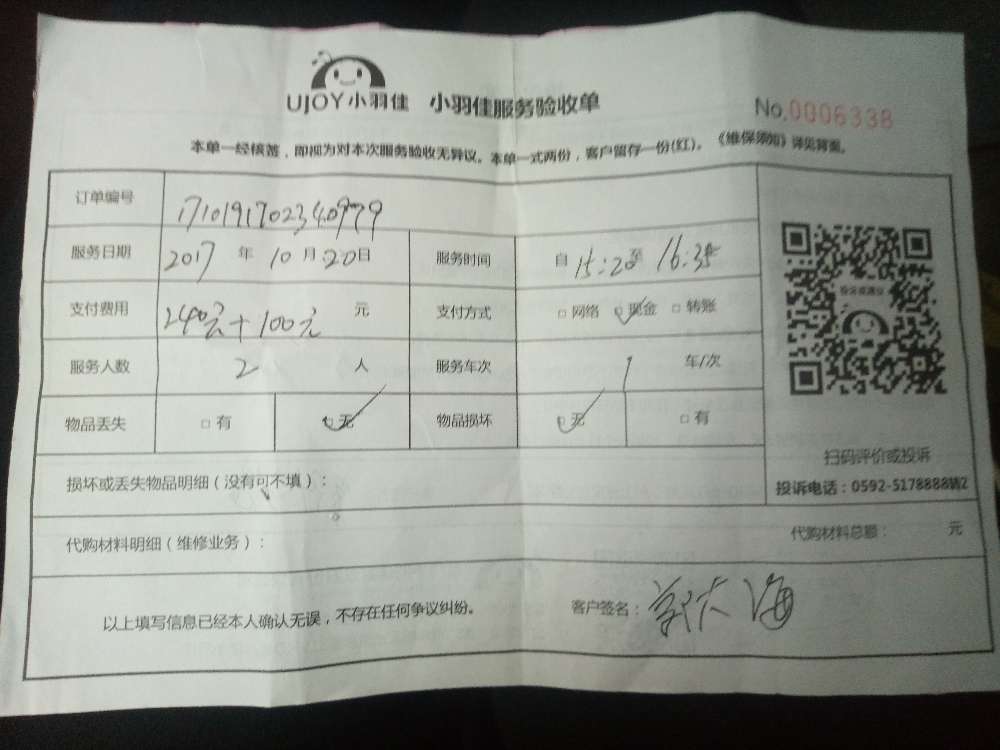 UJOY小羽佳 小羽佳服务验收单 No.0006338
本单一经核签，即视为对本次服务验收无异议。本单一式两份，客户留存一份(红)。《维保须知》详见背面。
订单编号 1710191702340979
服务日期 2017 年 10 月 20 日 服务时间 自 15:20 至 16:35
支付费用 240元+100元 元 支付方式 □网络 □现金 □转账
服务人数 2 人 服务车次 1 车/次
物品丢失 □有 □无 物品损坏 □无 □有
扫码评价或投诉
投诉电话：0592-5178888转2
损坏或丢失物品明细（没有可不填）：
代购材料明细（维修业务）： 代购材料总额： 元
以上填写信息已经本人确认无误，不存在任何争议纠纷。 客户签名： 大海